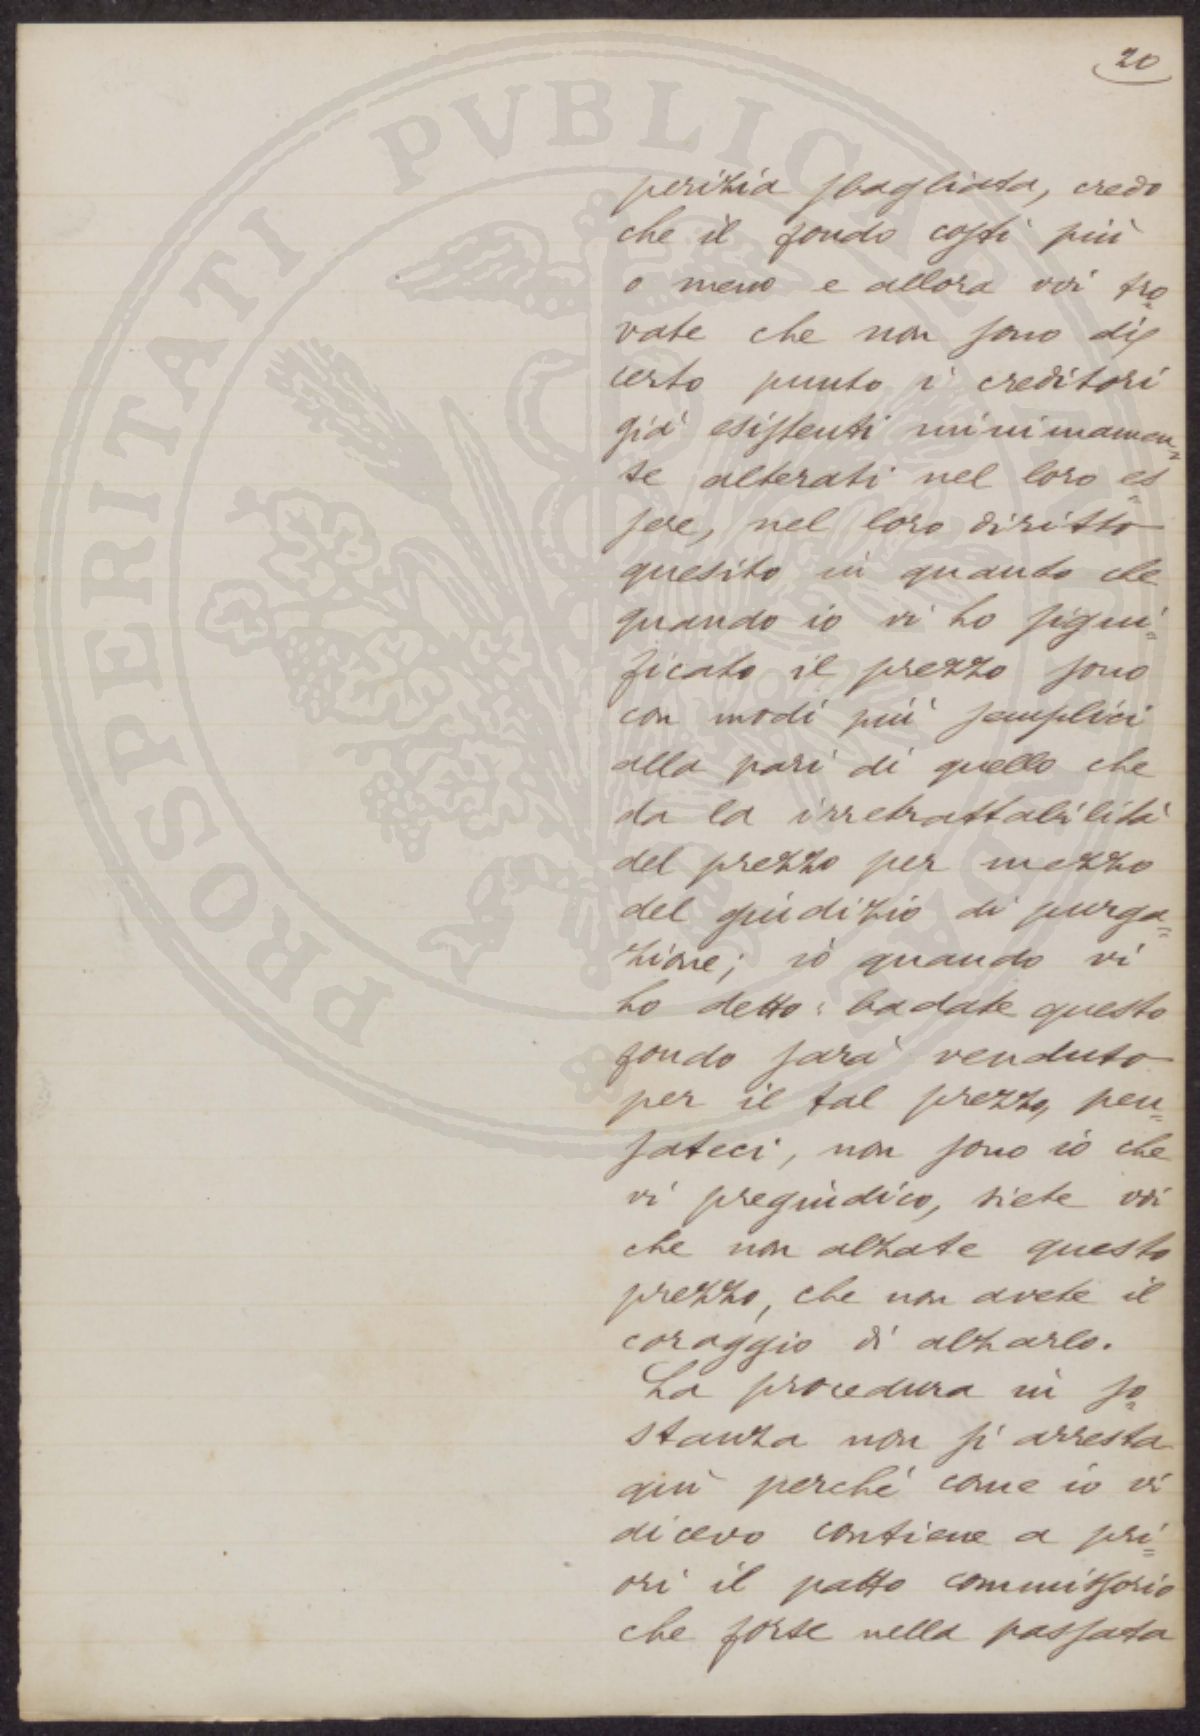 20
perizia sbagliata, credo
che il fondo costi più
o meno e allora voi tro=
vate che non sono di
certo punto i creditori
già esistenti minimamen=
te alterati nel loro es=
sere, nel loro diritto
quesito in quanto che
quando io vi ho signi=
ficato il prezzo sono
con modi più semplici
alla pari di quello che
da la irretrattabilità
del prezzo per mezzo
del giudizio di purga=
zione; io quando vi
ho detto: badate questo
fondo sarà venduto
per il tal prezzo, pen=
sateci, non sono io che
vi pregiudico, siete voi
che non alzate questo
prezzo, che non avete il
coraggio di alzarlo.
La procedura in so=
stanza non si arresta
qui perché come io vi
dicevo contiene a pri=
ori il patto commissorio
che forse nella passata
PROSPERITATI PVBLICAE